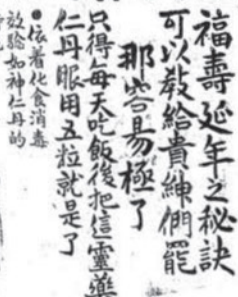 福壽延年之秘訣
可以教給貴紳們罷
那容易極了
只得每天吃飯後把這靈藥
仁丹眼用五粒就是了
●依着化食消毒
放驗如神仁丹的